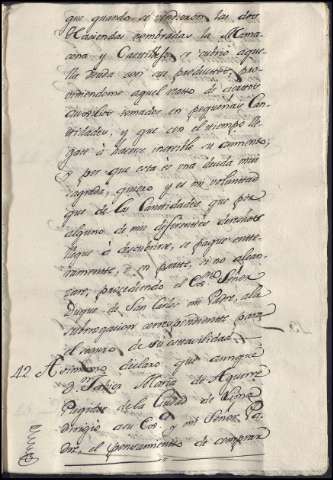 que quando se vendieron las dos
Haciendas nombradas la Mima
cona, y Castilleja se cubrió aque
lla deuda con sus productos, pro
viniendome aquel exceso de cuatro
auxilios tomados en pequeñas Can
tidades, y que con el tiempo lle
gase à hacerse increible su aumento;
y por que esta es una deuda mui
sagrada, quiero y es mi voluntad
que de las Cantidades que por
alguno de mis diferentes derechos
llegue à descubrirse, se pague ente
ramente, ò en parte, si no alcan
zare, precediendo el Señor
Duque de San Carlos mi Padre, à la
subrogacion correspondiente para
el recurso de su
42. Asimismo declaro que aunque
Dn. Maria de Aguirre
Regidor de la Ciudad de Lima
dirigio a su y mi Señor Pa
dre, el pensamiento de comprar